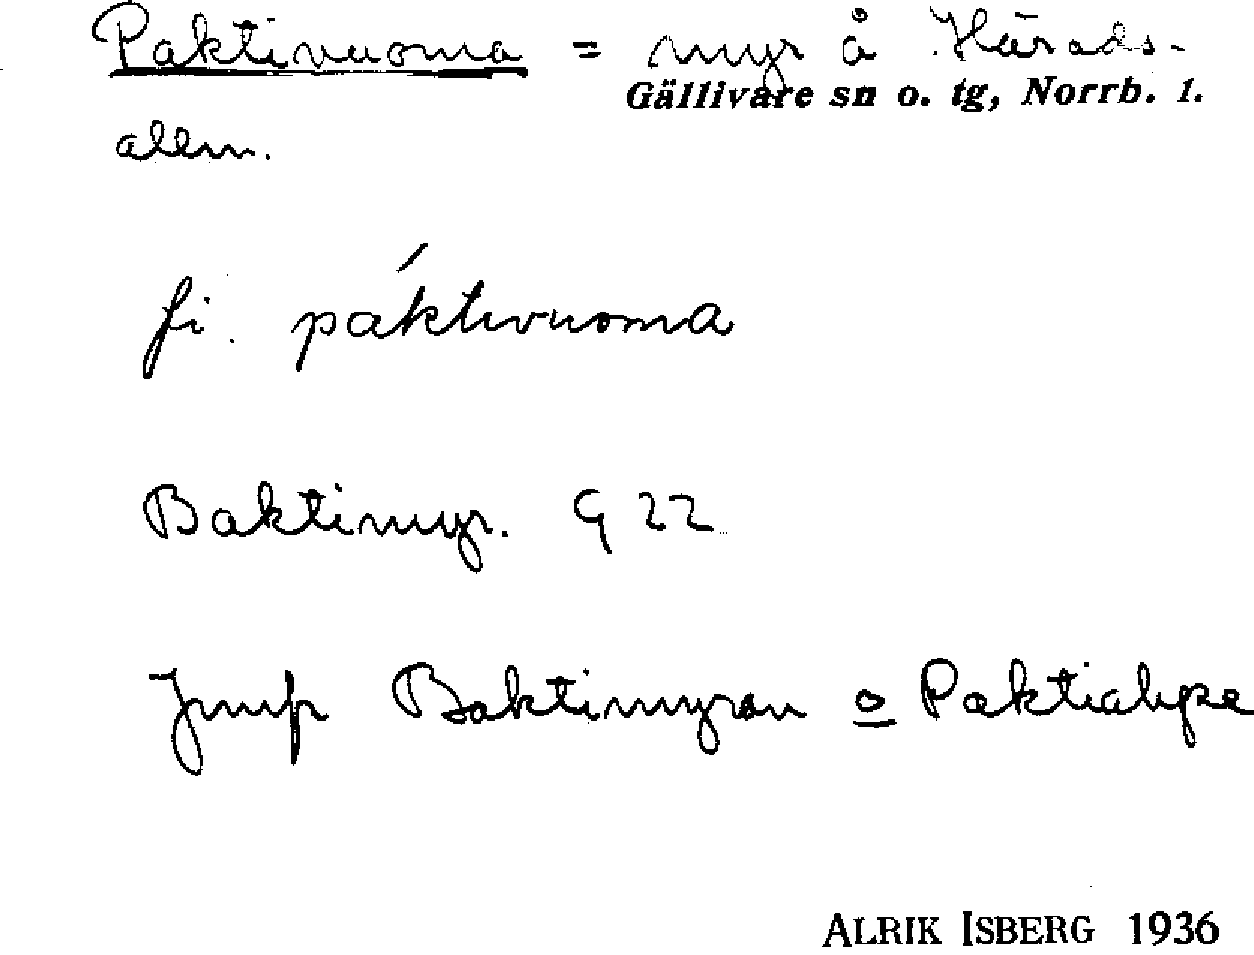 Paktivuoma = myr å Härads-
Gällivare sn o. tg, Norrb. l.
allm.
fi. páktivuoma
Baktimyr. G 22
Jmfr Baktimyran o Paktialype
ALRIK ISBERG 1936